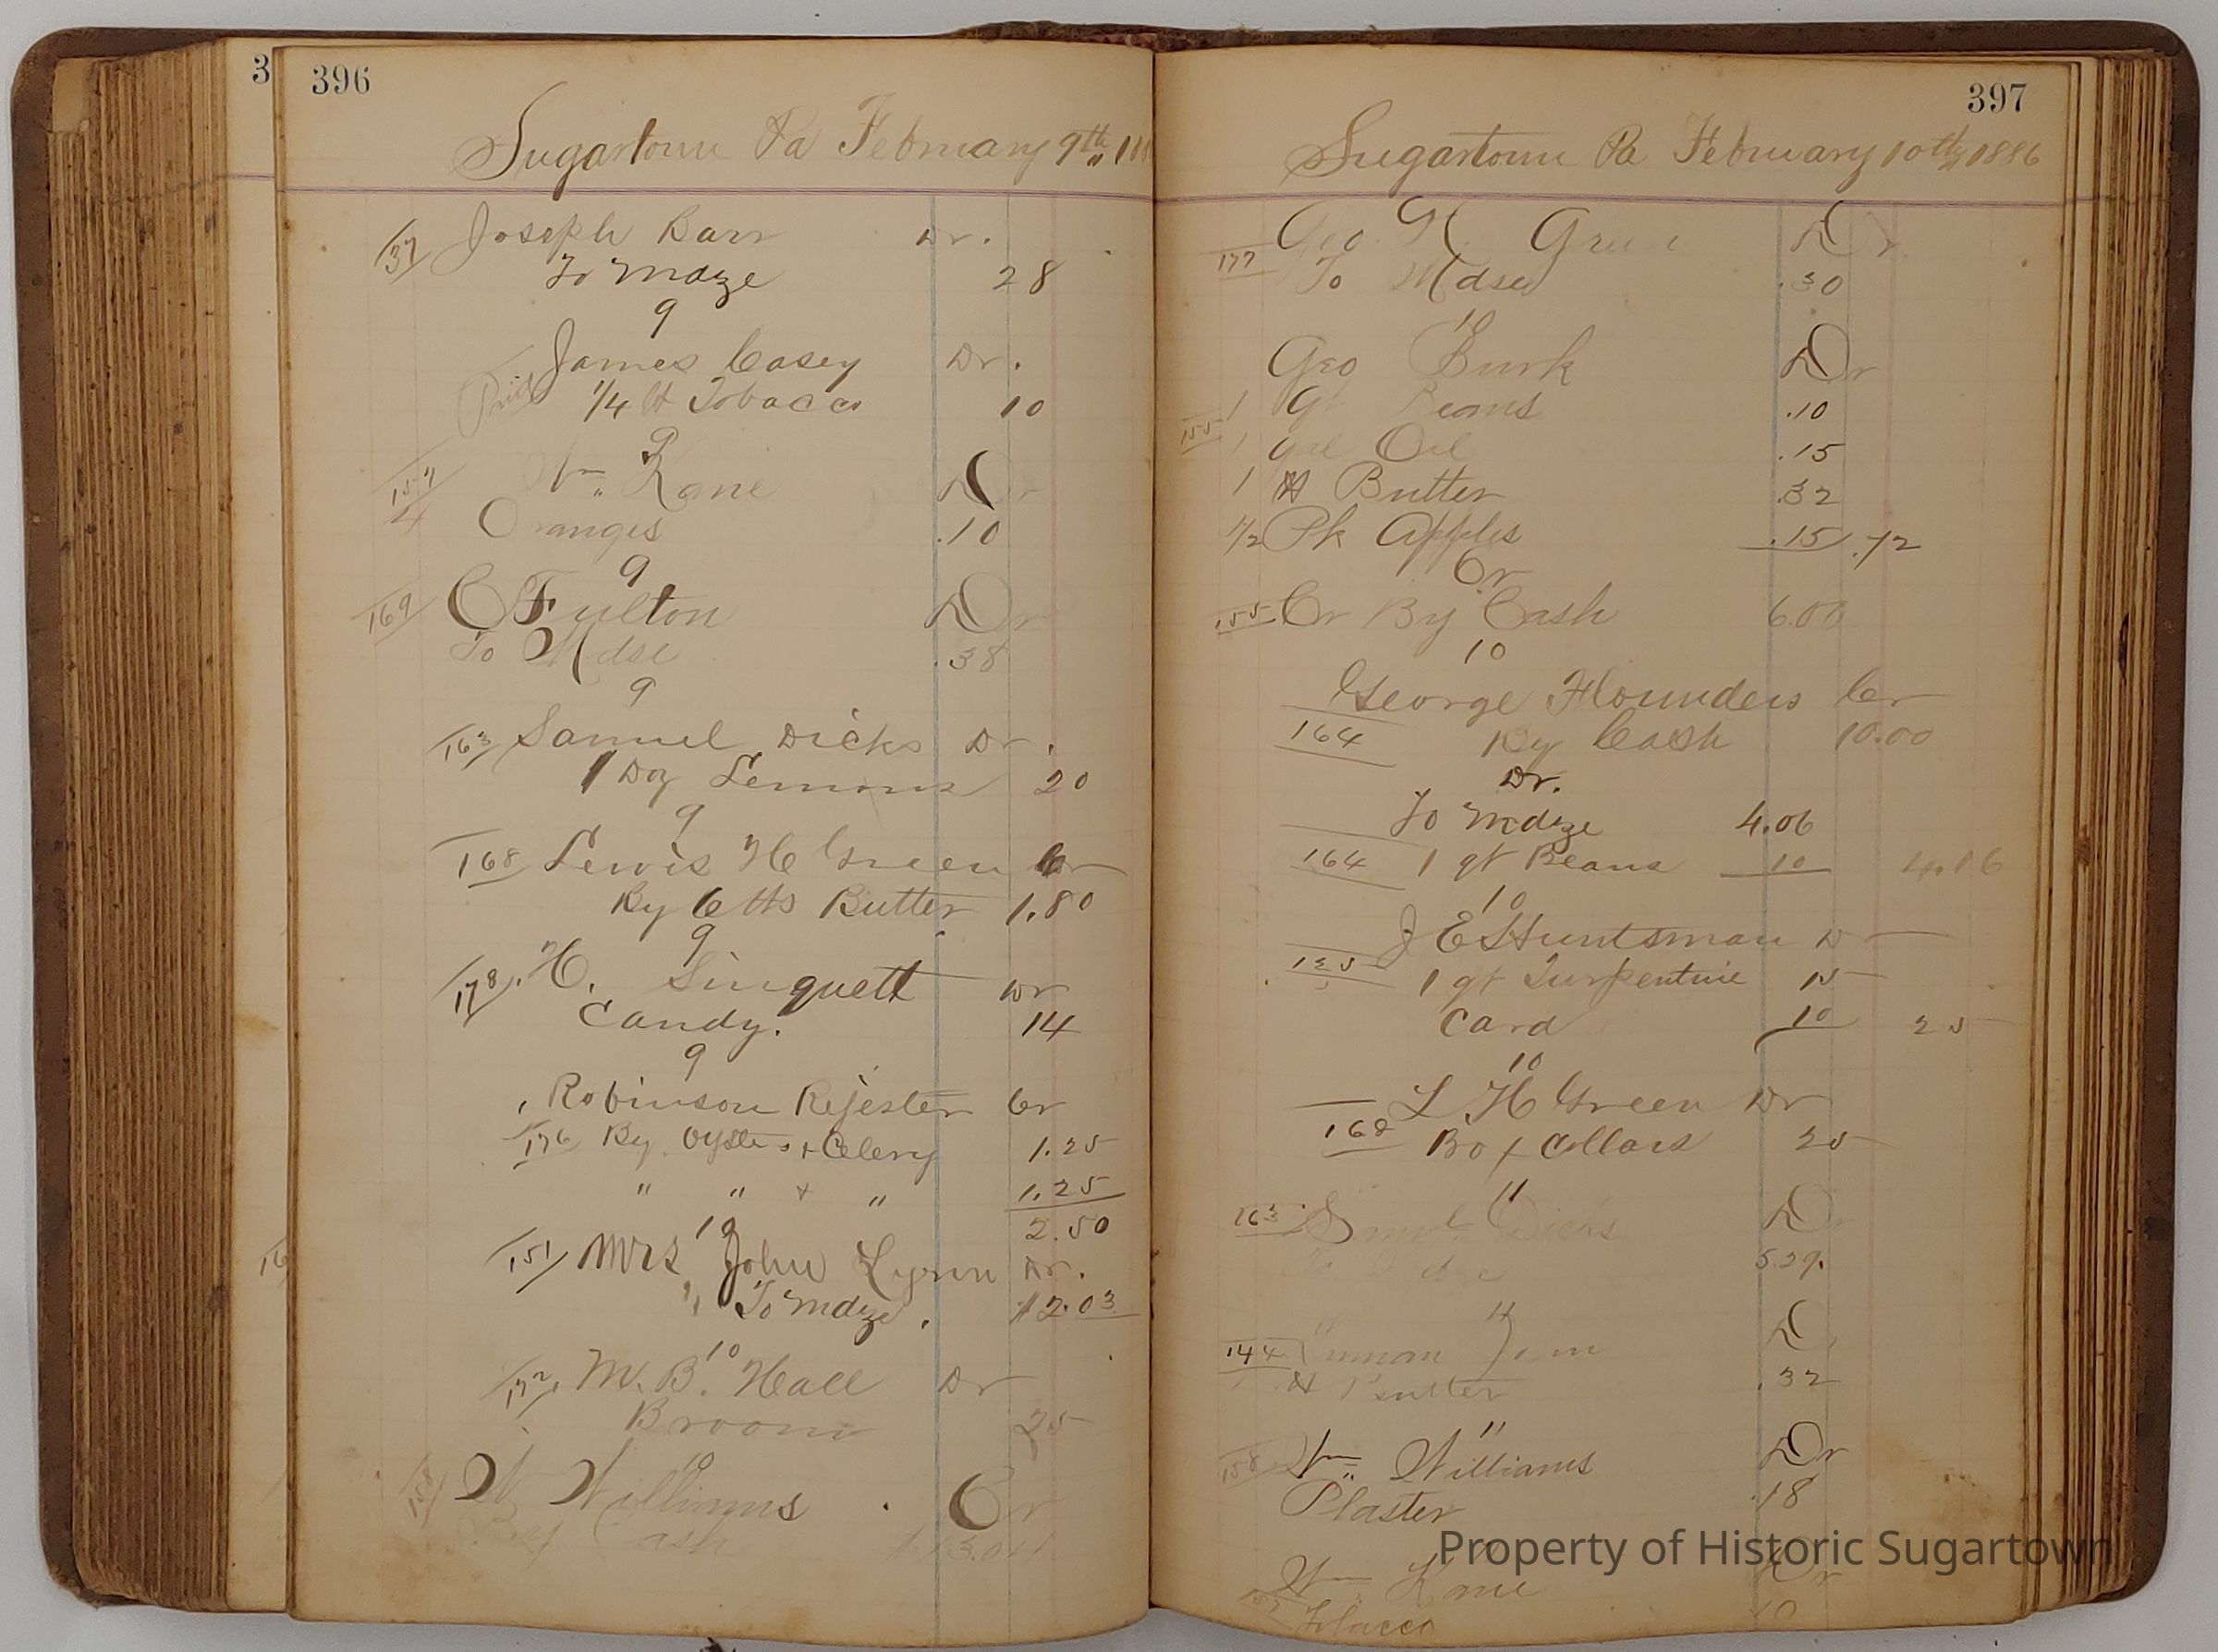 3
396
Sugartown Pa February 9th
37 Joseph Barr Dr.
To Mdze 28
9
James Casey Dr.
Paid 1/4 lb Tobacco 10
9
157 Wm Kane Dr
4 Oranges .10
9
169 C Fulton Dr
To Mdse .38
9
163 Samuel Dicks Dr.
1 Doz Lemons 20
9
168 Lewis H Green Cr
By 6 lbs Butter 1.80
9
178 H. Sinquett Dr
Candy. 14
9
Robinson Rejester Cr
176 By Oysters + Celery 1.25
" " + " 1.25
2.50
10
151 Mrs John Lynn Dr.
" To Mdze, $2.03
10
172 M. B. Hall Dr
Broom 25
10
158 W Williams Cr
By Cash
397
Sugartown Pa February 10th 1886
177 Geo. H. Green Dr
To Mdse .30
10
Geo Burk Dr
1 qt Beans .10
155 1 gal Oil .15
1 lb Butter .32
1/2 Pk Apples .15 .72
Cr
155 Cr By Cash 6.00
10
George Flounders Cr
164 By Cash 10.00
Dr.
To Mdze 4.06
164 1 qt Beans 10 4.16
10
J E Huntsman Dr
125 1 qt Turpentine 15
Card 10 25
10
L H Green Dr
168 Box Collars 25
11
163 Saml Dicks Dr
5.29.
11
144 Dr
lb Butter .32
11
158 Wm Williams Dr
Plaster .18
11
Wm Kane Dr
Tobacco 10
Property of Historic Sugartown